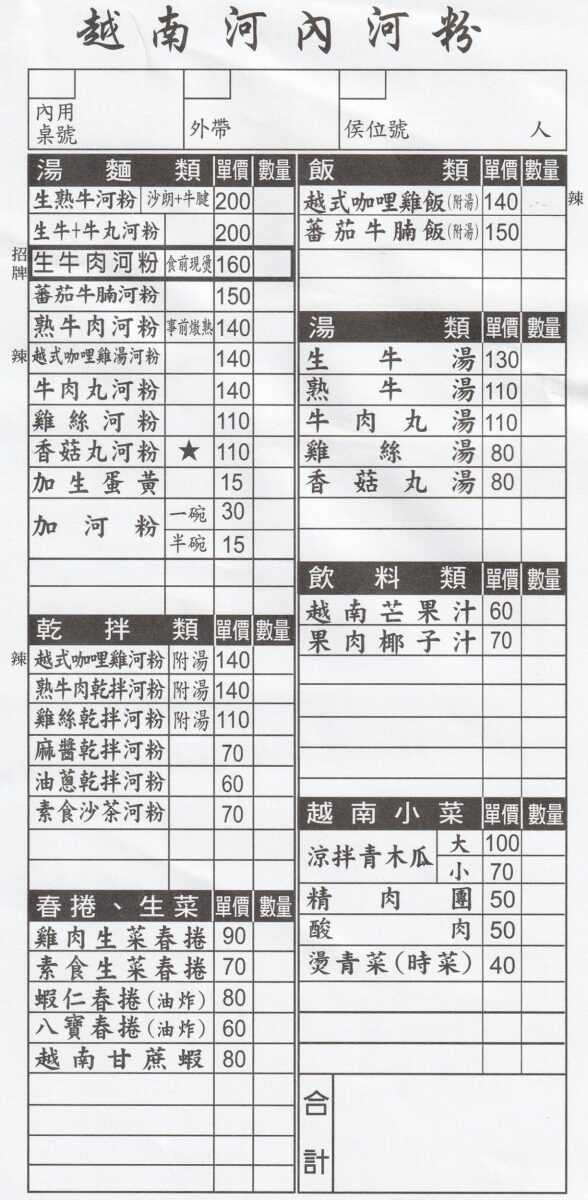 越南河內河粉
內用
桌號
外帶
侯位號 人
湯麵類 單價 數量
生熟牛河粉 沙朗+牛腱 200
生牛+牛丸河粉 200
招牌 生牛肉河粉 食前現燙 160
蕃茄牛腩河粉 150
熟牛肉河粉 事前燉熟 140
辣 越式咖哩雞湯河粉 140
牛肉丸河粉 140
雞絲河粉 110
香菇丸河粉 ★ 110
加生蛋黃 15
加河粉 一碗 30
半碗 15
乾拌類 單價 數量
辣 越式咖哩雞河粉 附湯 140
熟牛肉乾拌河粉 附湯 140
雞絲乾拌河粉 附湯 110
麻醬乾拌河粉 70
油蔥乾拌河粉 60
素食沙茶河粉 70
春捲、生菜 單價 數量
雞肉生菜春捲 90
素食生菜春捲 70
蝦仁春捲(油炸) 80
八寶春捲(油炸) 60
越南甘蔗蝦 80
飯類 單價 數量
越式咖哩雞飯(附湯) 140 辣
蕃茄牛腩飯(附湯) 150
湯類 單價 數量
生牛湯 130
熟牛湯 110
牛肉丸湯 110
雞絲湯 80
香菇丸湯 80
飲料類 單價 數量
越南芒果汁 60
果肉椰子汁 70
越南小菜 單價 數量
涼拌青木瓜 大 100
小 70
精肉團 50
酸肉 50
燙青菜(時菜) 40
合計